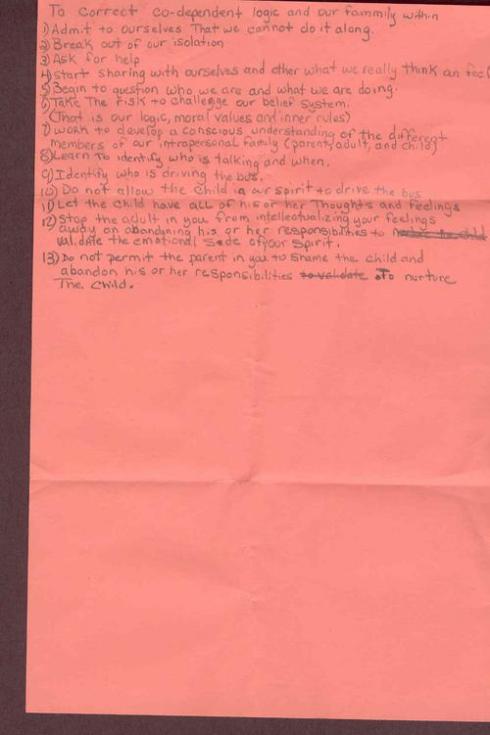 To correct co-dependent logic and our fammily within
1) Admit to ourselves That we cannot do it along.
2) Break out of our isolation
3) Ask for help
4) Start sharing with ourselves and other what we really think an fee
5) Begin to question who we are and what we are doing.
6) Take The risk to challenge our belief system.
(That is our logic, moral values and inner rules)
7) work to develop a conscious understanding of the different
members of our intrapersonal family (parent, adult, and child)
8) Learn To identify who is talking and when.
9) Identify who is driving the bus.
10) Do not allow the child in our spirit to drive the bus
11) Let the child have all of his or her Thoughts and feelings
12) Stop the adult in you from intellectualizing your feelings
away an abandoning his or her responsibilities to
validate the emotional side of your spirit.
13) Do not permit the parent in you to shame the child and
abandon his or her responsibilities to validate To nurture
The child.